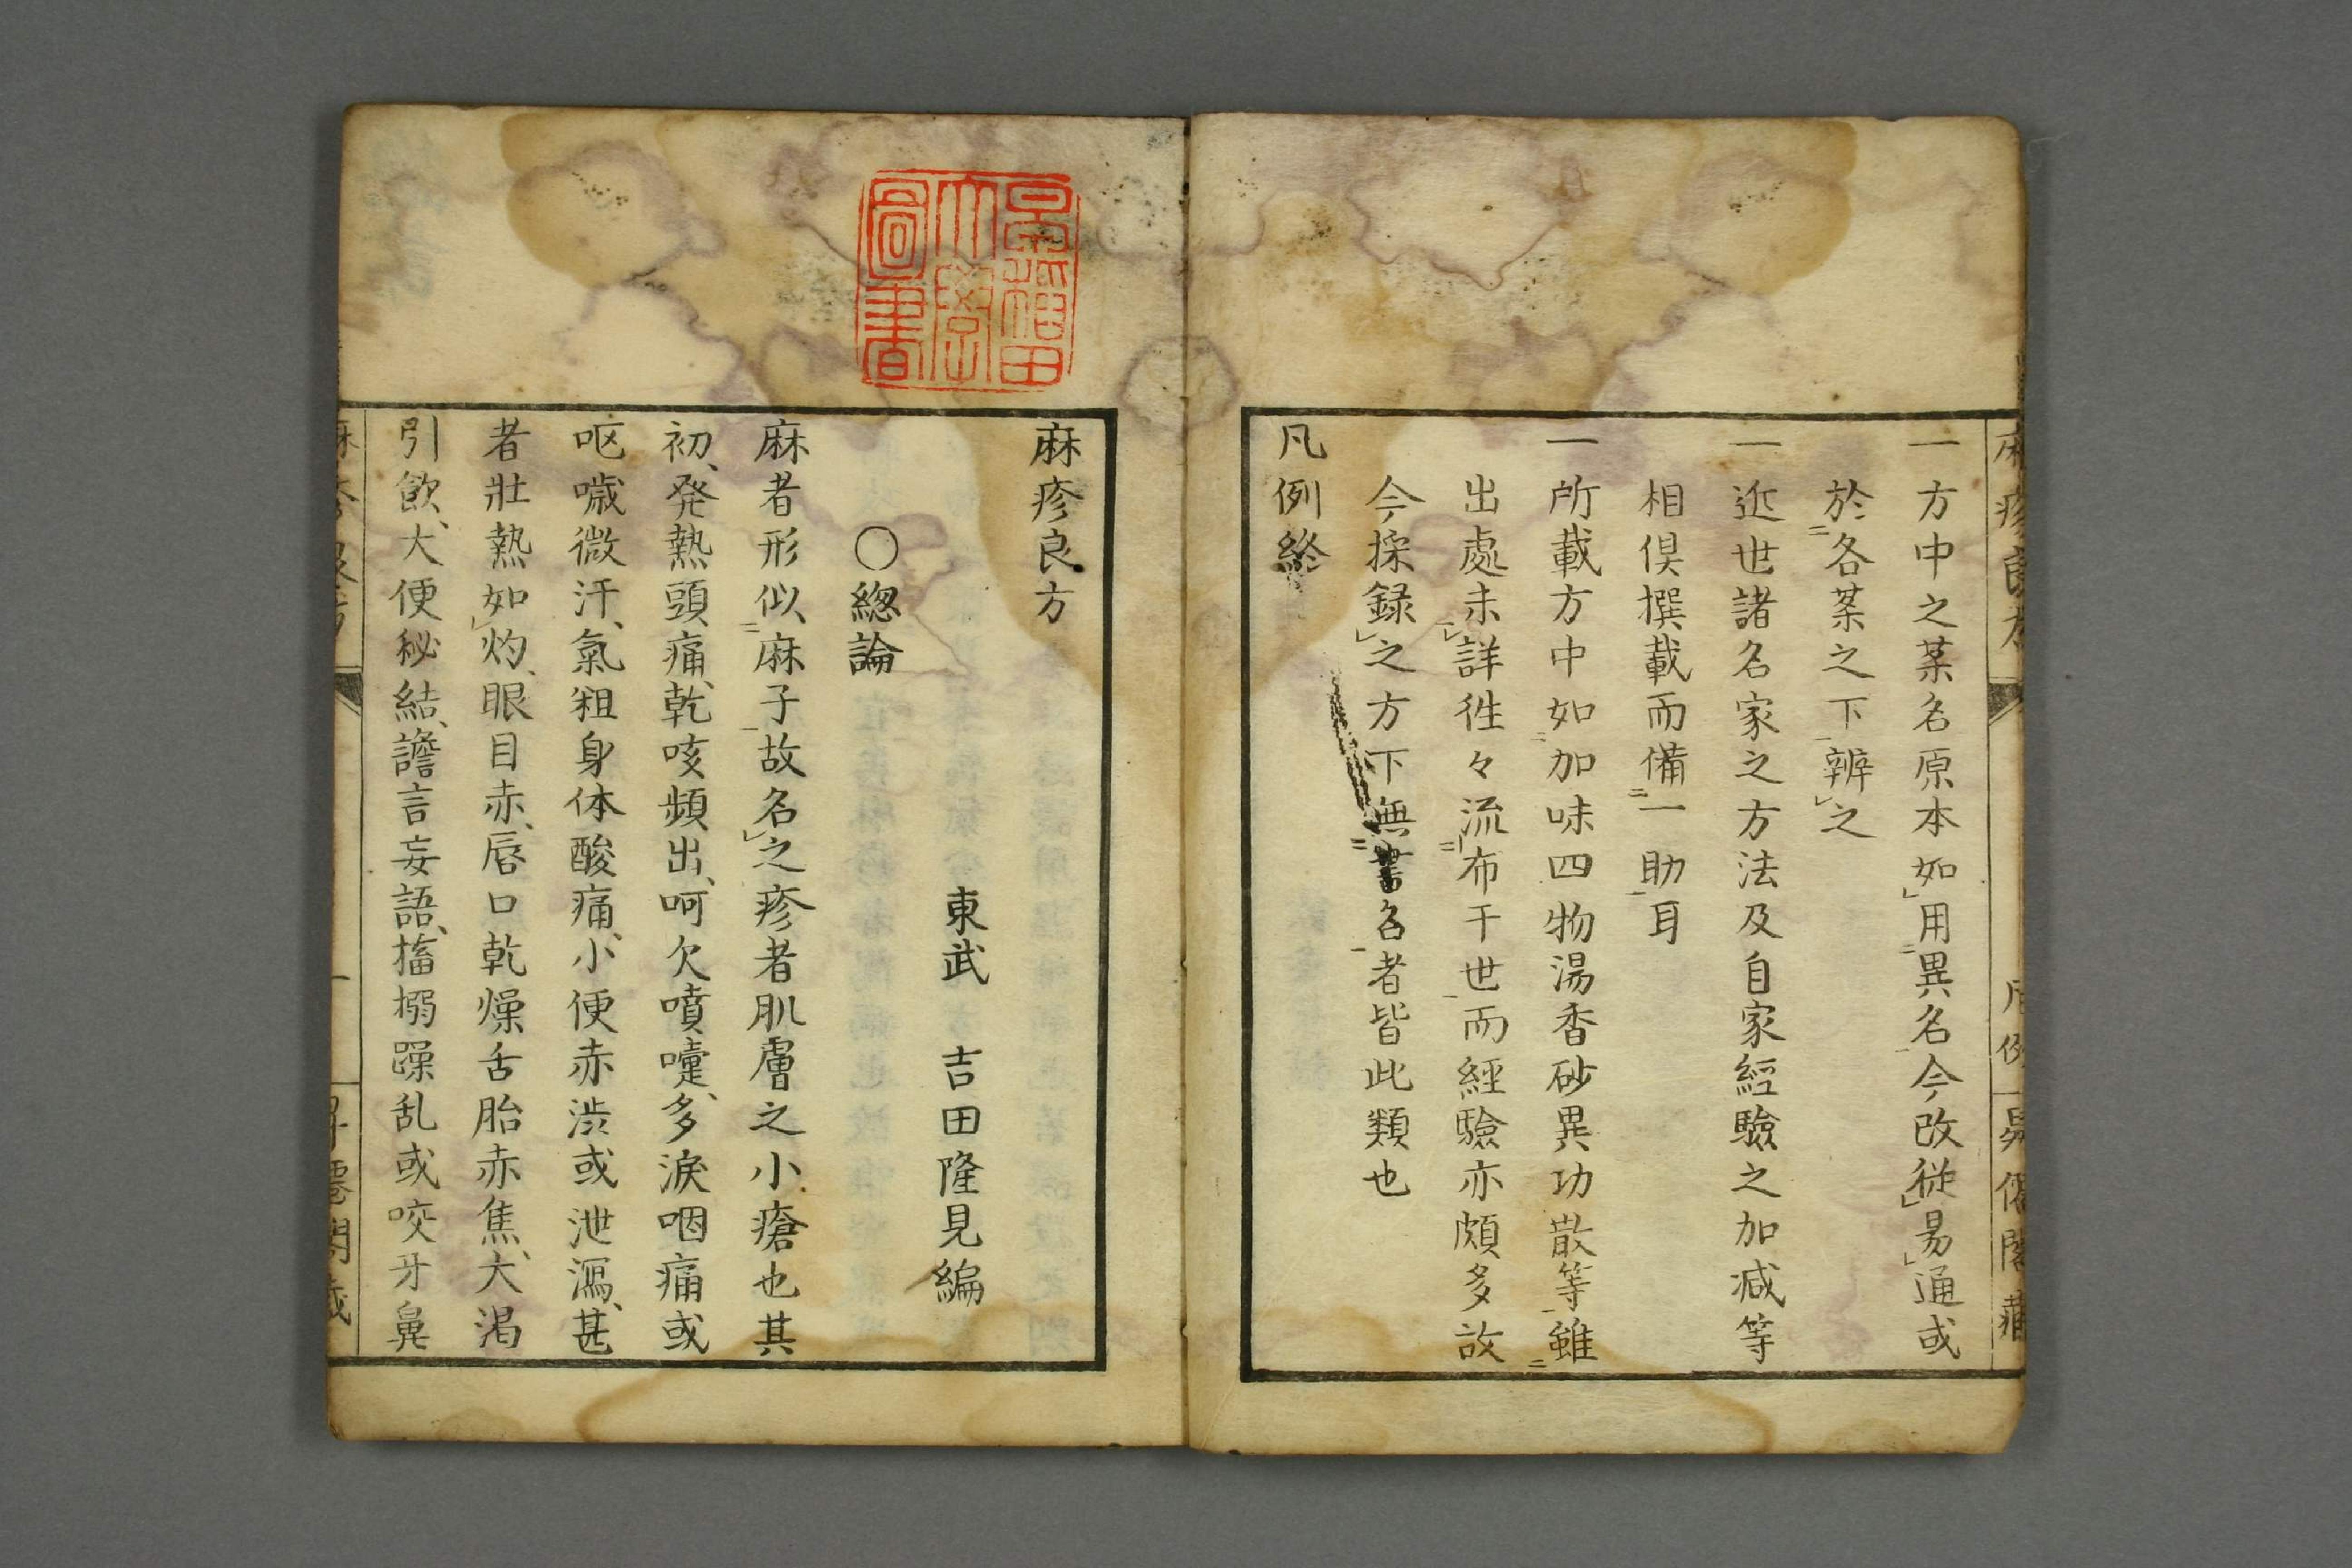 一方中之某名原本如用異名今改従易通或
於各某之下辨之
一近世諸名家之方法及自家經驗之加减等
相倶撰載而備一助耳
一所載方中如加味四物湯香砂異功散等雖
出處未詳徃々流布干世而經驗亦頗多故
今採録之方下無書名者皆此類也
凡例終
早稲田大學圖書
麻疹良方
東武 吉田隆見編
〇總論
麻者形似麻子故名之疹者肌膚之小瘡也其
初、発熱頭痛、乾咳頻出、呵欠噴嚔、多淚咽痛或
呕噦微汗、氣粗身体酸痛、小便赤渋或泄瀉、甚
者壯熱如灼、眼目赤、唇口乾燥舌胎赤焦、大渇
引飲、大便秘結、譫言妄語、搐搦躁乱或咬牙鼻